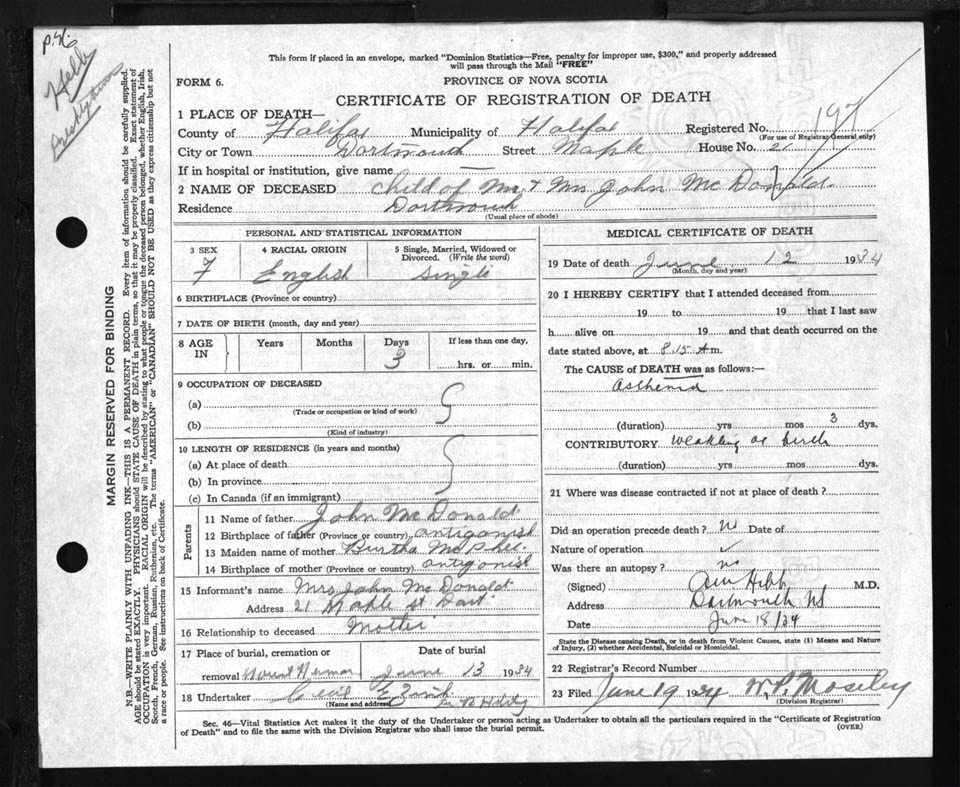 p.76
Presbyterian
MARGIN RESERVED FOR BINDING
N.B.—WRITE PLAINLY WITH UNFADING INK—THIS IS A PERMANENT RECORD. Every item of information should be carefully supplied.
AGE should be stated EXACTLY. PHYSICIANS should STATE CAUSE OF DEATH in plain terms, so that it may be properly classified. Exact statement of
OCCUPATION is very important. RACIAL ORIGIN will be described by stating to what people or tongue the deceased person belonged, whether English, Irish,
Scotch, French, German, Russian, Ruthenian, etc. The terms "AMERICAN" or "CANADIAN" SHOULD NOT BE USED as they express citizenship but not
a race or people. See instructions on back of Certificate.
This form if placed in an envelope, marked "Dominion Statistics—Free, penalty for improper use, $300," and properly addressed
will pass through the Mail "FREE"
FORM 6.
PROVINCE OF NOVA SCOTIA
CERTIFICATE OF REGISTRATION OF DEATH
1 PLACE OF DEATH—
County of Halifax Municipality of Halifax Registered No. 197
(For use of Registrar General only)
City or Town Dartmouth Street Maple House No. 21
If in hospital or institution, give name —
2 NAME OF DECEASED Child of Mr + Mrs John McDonald
Residence Dartmouth
(Usual place of abode)
PERSONAL AND STATISTICAL INFORMATION
3 SEX F
4 RACIAL ORIGIN English
5 Single, Married, Widowed or Divorced. (Write the word) Single
6 BIRTHPLACE (Province or country)
7 DATE OF BIRTH (month, day and year)
8 AGE IN Years Months Days 3 If less than one day, hrs. or min.
9 OCCUPATION OF DECEASED
(a)
(Trade or occupation or kind of work)
(b)
(Kind of industry)
10 LENGTH OF RESIDENCE (in years and months)
(a) At place of death
(b) In province
(c) In Canada (if an immigrant)
Parents
11 Name of father John McDonald
12 Birthplace of father (Province or country) Antigonish
13 Maiden name of mother Burtha McPhee
14 Birthplace of mother (Province or country) Antigonish
15 Informant's name Mrs John McDonald
Address 21 Maple St Dart
16 Relationship to deceased Mother
17 Place of burial, cremation or removal Mount Hermon
Date of burial June 13 1934
18 Undertaker Cecil E Zink
(Name and address)
MEDICAL CERTIFICATE OF DEATH
19 Date of death June 12 1934
(Month, day and year)
20 I HEREBY CERTIFY that I attended deceased from
19 to 19 that I last saw
h alive on 19 and that death occurred on
date stated above, at 8.15 A m.
The CAUSE of DEATH was as follows:—
Asthenia
(duration) yrs mos 3 dys.
CONTRIBUTORY weakling at birth
(duration) yrs mos dys.
21 Where was disease contracted if not at place of death?
Did an operation precede death? No Date of
Nature of operation ✓
Was there an autopsy? no
(Signed) Hebb M.D.
Address Dartmouth NS
Date June 18/34
State the Disease causing Death, or in death from Violent Causes, state (1) Means and Nature
of Injury, (2) whether Accidental, Suicidal or Homicidal.
22 Registrar's Record Number
23 Filed June 19 1934 Moseley
(Division Registrar)
Sec. 46—Vital Statistics Act makes it the duty of the Undertaker or person acting as Undertaker to obtain all the particulars required in the "Certificate of Registration
of Death" and to file the same with the Division Registrar who shall issue the burial permit.
(OVER)